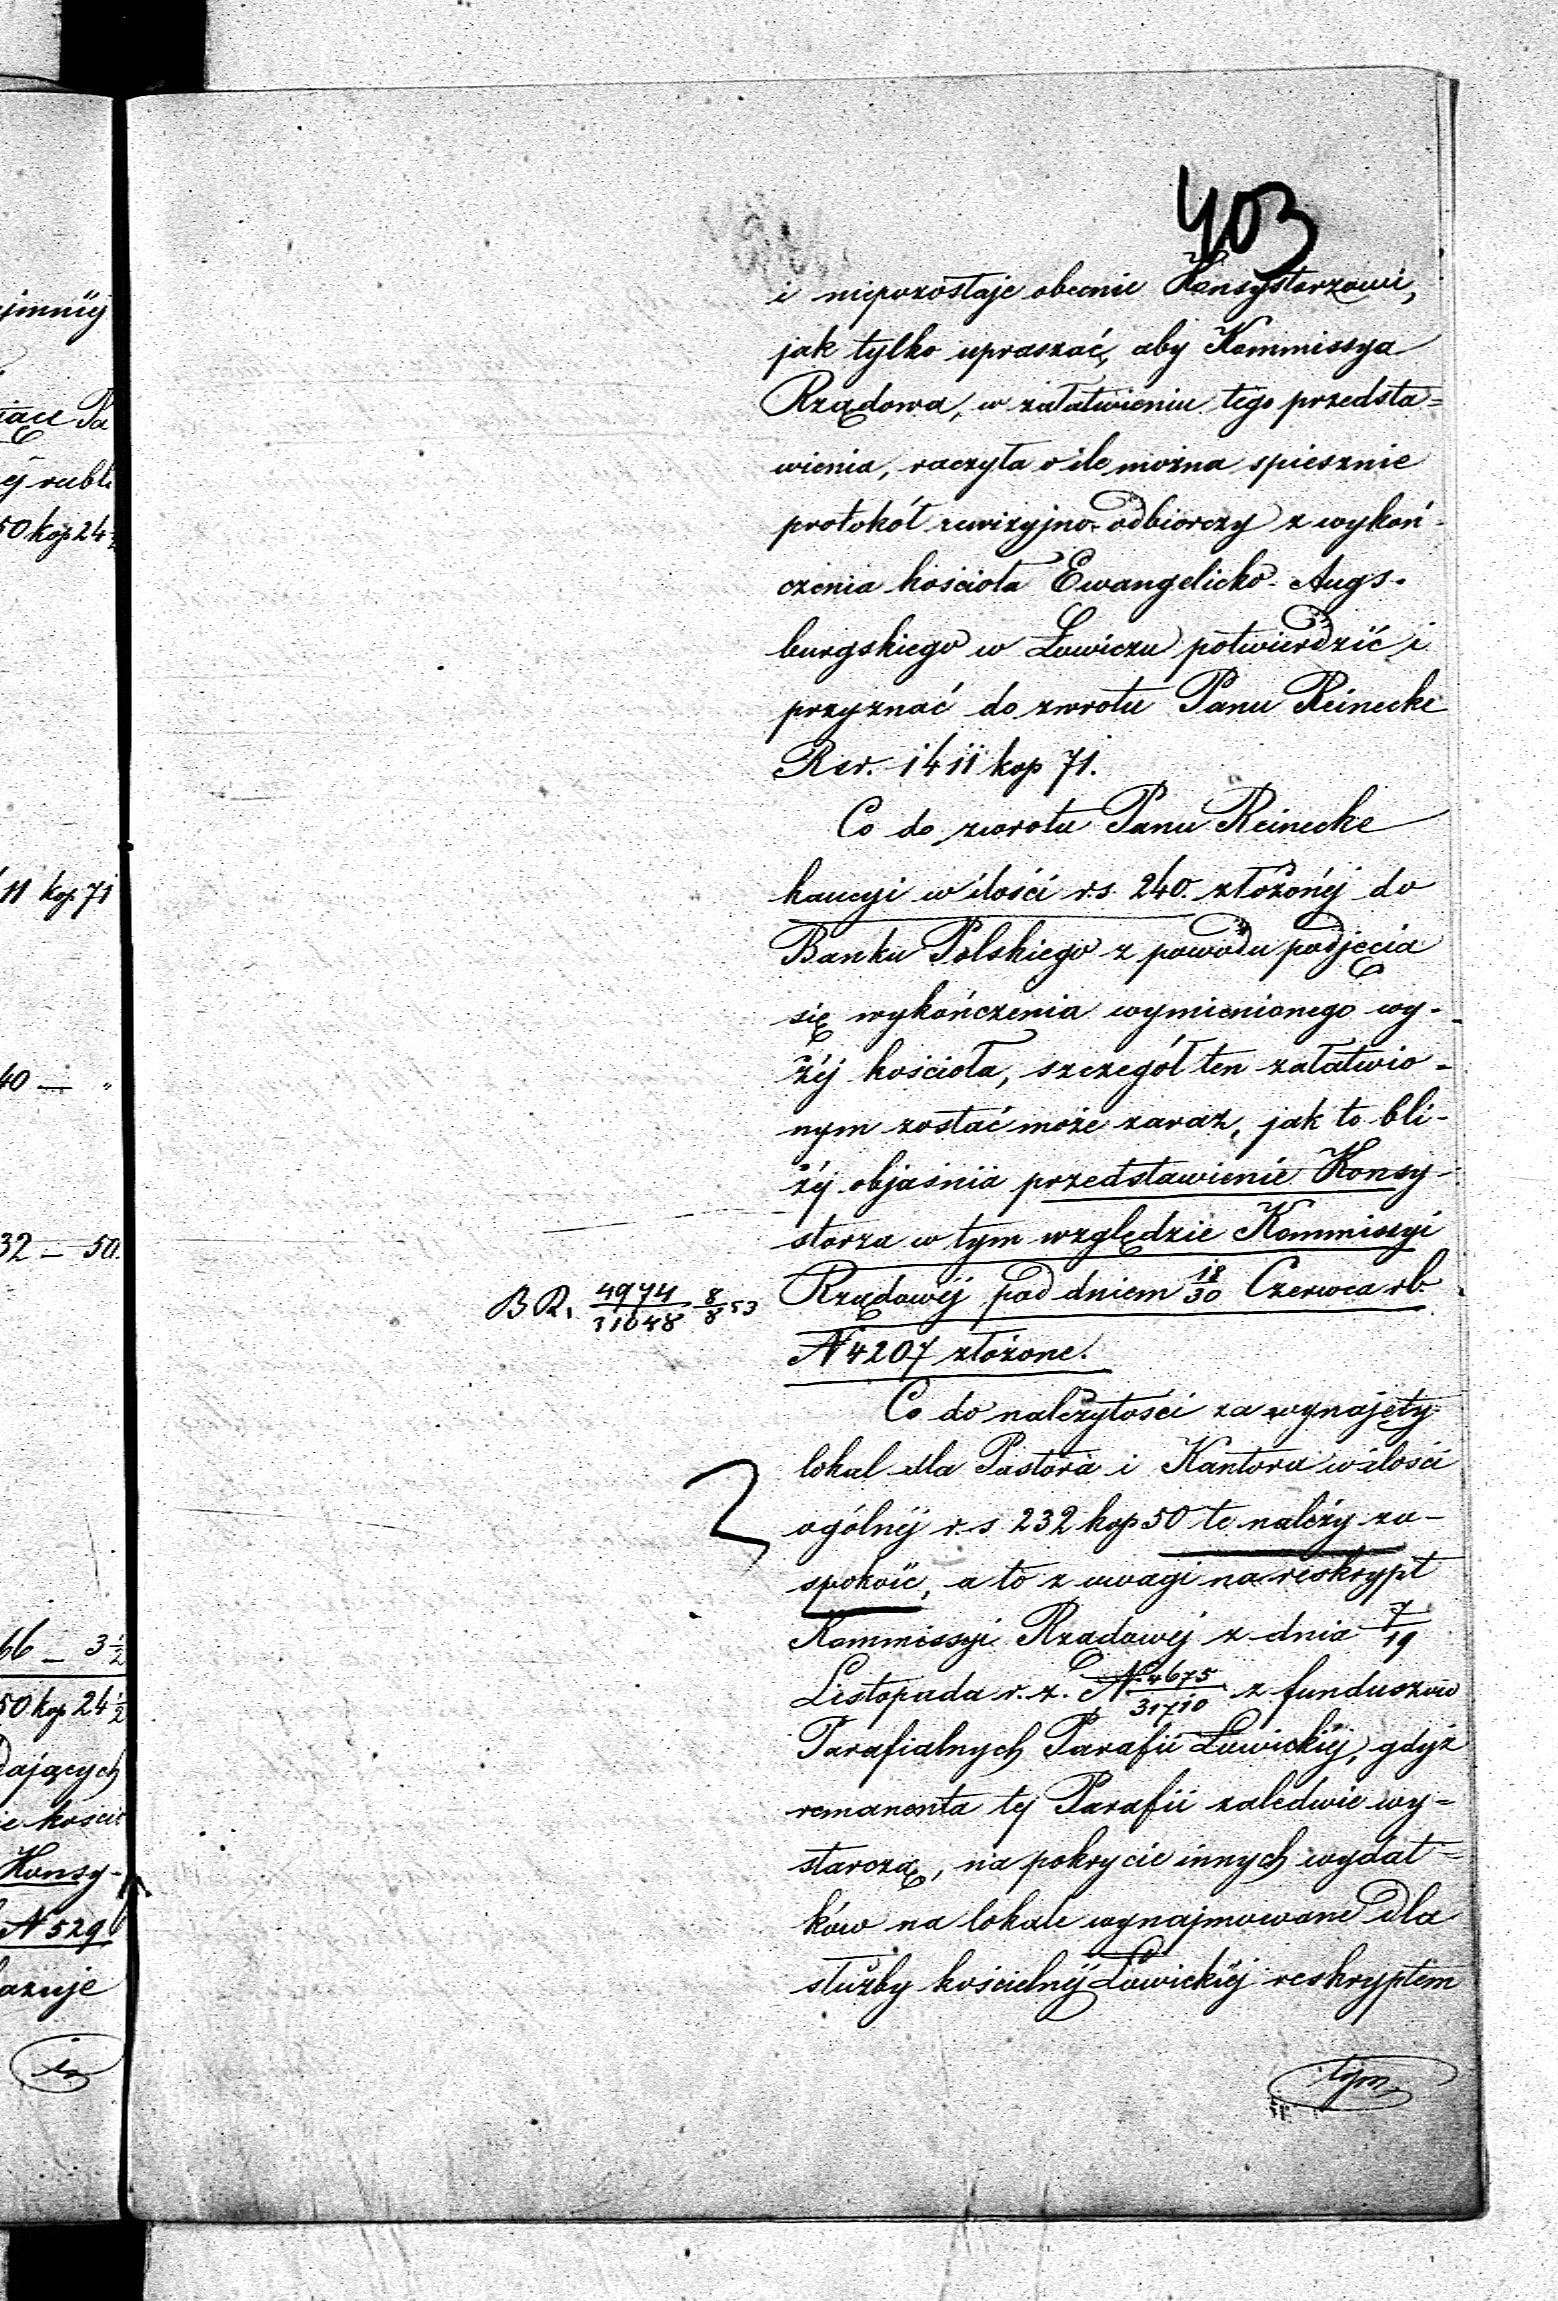 403
i niepozostaje obecnie Konsystorzowi,
jak tylko upraszać, aby Kommissya
Rządowa, w załatwieniu tego przedsta=
wienia, raczyła o ile można spiesznie
protokół rewizyjno-odbiorczy z wykoń-
czenia kościoła Ewangelicko-Augs-
burgskiego w Łowiczu potwierdzić i
przyznać do zwrotu Panu Reinecke
Rsr. 1411 kop 71.
Co do zwrotu Panu Reinecke
kaucyi w ilości r.s. 240. złożonéj do
Banku Polskiego z powodu podjęcia
się wykończenia wymienionego wy-
żéj kościoła, szczegół ten załatwio-
nym zostać może zaraz, jak to bli-
żéj objaśnia przedstawienie Konsy-
storza w tym względzie Kommissyi
Rządowéj pod dniem 18/30 Czerwca rb.
B R. 4974/31048 8/8 53
N 4207 złożone.
Co do należytości za wynajęty
lokal dla Pastora i Kantora w ilości
ogólnéj r.s 232 kop 50 te należy za-
spokoić, a to z uwagi na reskrypt
Kommissyi Rządowéj z dnia 7/19
Listopada r. z. N. 4675/31710 z funduszów
Parafialnych Parafii Łowickiéj, gdyż
remanenta téj Parafii zaledwie wy=
starczą, na pokrycie innych wydat=
ków na lokale wynajmowane dla
służby kościelnéj Łowickiéj reskryptem
tym
jmniéj
iące Pa
éj rubli
50 kop 24 1/2
11 kop. 71
40 — "
32 — 50.
66 — 3 1/2
50 kop. 24 1/2
dających
ie kościo
Konsy-
N 529
azuje